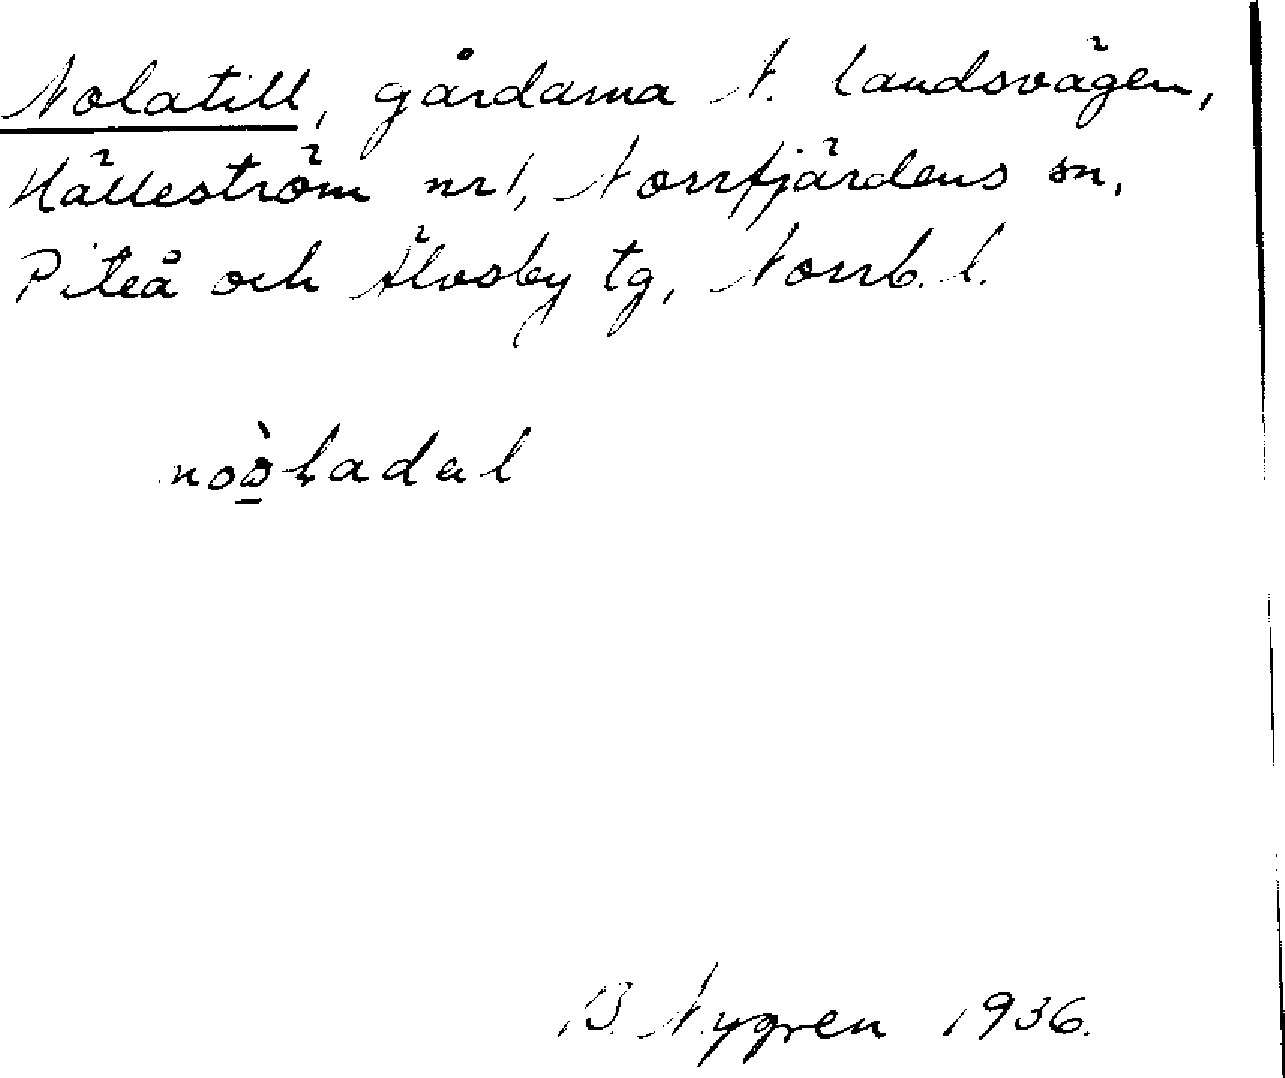 Nolatill, gårdarna N. landsvägen,
Hälleström nr 1, Norrfjärdens sn,
Piteå och Älvsby tg, Norrb. l.
B. Nygren 1936.